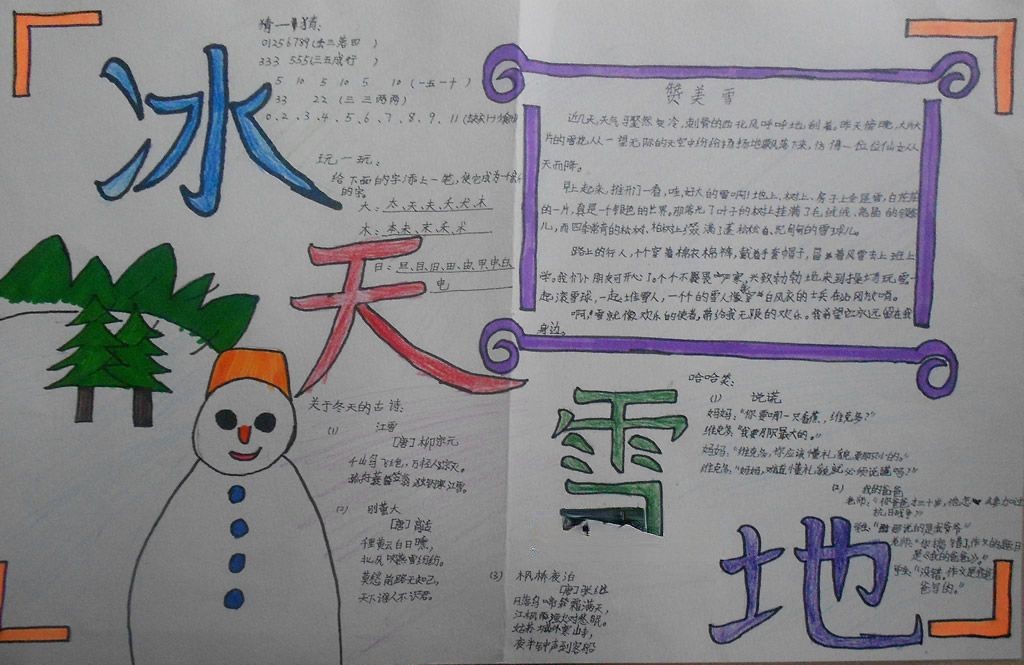 冰
天
雪
地
猜一猜:
01256789(去三落四 )
333 555(三五成行 )
5 10 5 10 5 10 (一五一十 )
33 22 (三三两两)
0、2、3、4、5、6、7、8、9、11
玩一玩:
给下面的字添上一笔,使它成为
的字。
大:太、天、夫、
木:本、末、禾、术
日:旦、目、旧、田、由、甲、申、白、
电
关于冬天的古诗:
(1) 江雪
[唐]柳宗元
千山鸟飞绝,万径人踪灭。
孤舟蓑笠翁,独钓寒江雪。
(2) 别董大
[唐]高适
里黄云白日曛,
北风吹雁雪纷纷。
莫愁前路无知己,
天下谁人不识君。
(3) 枫桥夜泊
[唐]张继
月落乌啼霜满天,
江枫渔火对愁眠。
姑苏城外寒山寺,
夜半钟声到客船
赞美雪
近几天,天气骤然变冷,刺骨的西北风呼呼地刮着。昨天傍晚,大片大
片的雪花从一望无际的天空中纷纷扬扬地飘落下来,仿佛一位位仙女从
天而降。
早上起来,推开门一看,哇,好大的雪啊!地上、树上、房子上全是雪,白茫茫
的一片,真是一个银色的世界。那落光了叶子的树上挂满了毛绒绒、亮晶的银条
儿,而四季常青的松树、柏树上缀满了蓬松松、沉甸甸的雪球儿。
路上的行人,个个穿着棉衣棉裤,戴着手套帽子,冒着风雪去上班上
学。我们小朋友可开心了。个个不畏严寒,兴致勃勃地来到操场玩雪一
起滚雪球,一起堆雪人,一个个的雪人像穿白风衣的士兵在站岗放哨。
啊!雪就像欢乐的使者,带给我无限的欢乐。我希望它永远留在我
身边。
哈哈笑:
(1) 说谎
妈妈:“你要哪一只香蕉,维克多?”
维克多:“我要那只最大的。”
妈妈:“维克多,你应该懂礼貌,要那只小的。”
维克多:“妈妈,难道懂礼貌就必须说谎吗?”
(2) 我的爸爸
老师:“你爸爸才三十岁,他怎 参加过
抗日战争?”
学生:“那说的是我爷爷”
老师:“你搞错了,作文的题目
是《我的爸爸》。”
学生:“没错。作文是我爸
爸写的。”